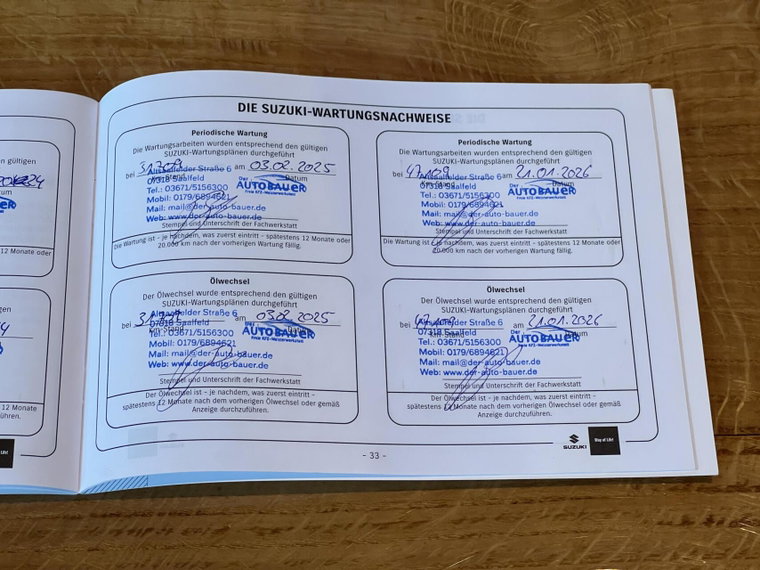 DIE SUZUKI-WARTUNGSNACHWEISE
Periodische Wartung
Die Wartungsarbeiten wurden entsprechend den gültigen
SUZUKI-Wartungsplänen durchgeführt
bei am 03.02.2025
Saalfelder Straße 6
07318 Saalfeld Datum
Tel.: 03671/5156300 Der
Mobil: 0179/6894621 AUTOBAUER
Mail: mail@der-auto-bauer.de Freie KFZ-Meisterwerkstatt
Web: www.der-auto-bauer.de
Stempel und Unterschrift der Fachwerkstatt
Die Wartung ist – je nachdem, was zuerst eintritt – spätestens 12 Monate oder
20.000 km nach der vorherigen Wartung fällig.
Periodische Wartung
Die Wartungsarbeiten wurden entsprechend den gültigen
SUZUKI-Wartungsplänen durchgeführt
bei 47.109 am 21.01.2026
Saalfelder Straße 6
07318 Saalfeld Datum
Tel.: 03671/5156300 Der
Mobil: 0179/6894621 AUTOBAUER
Mail: mail@der-auto-bauer.de Freie KFZ-Meisterwerkstatt
Web: www.der-auto-bauer.de
Stempel und Unterschrift der Fachwerkstatt
Die Wartung ist – je nachdem, was zuerst eintritt – spätestens 12 Monate oder
20.000 km nach der vorherigen Wartung fällig.
Ölwechsel
Der Ölwechsel wurde entsprechend den gültigen
SUZUKI-Wartungsplänen durchgeführt
bei am 03.02.2025
Saalfelder Straße 6
07318 Saalfeld Datum
Tel.: 03671/5156300 Der
Mobil: 0179/6894621 AUTOBAUER
Mail: mail@der-auto-bauer.de Freie KFZ-Meisterwerkstatt
Web: www.der-auto-bauer.de
Stempel und Unterschrift der Fachwerkstatt
Der Ölwechsel ist – je nachdem, was zuerst eintritt –
spätestens 12 Monate nach dem vorherigen Ölwechsel oder gemäß
Anzeige durchzuführen.
Ölwechsel
Der Ölwechsel wurde entsprechend den gültigen
SUZUKI-Wartungsplänen durchgeführt
bei 47.109 am 21.01.2026
Saalfelder Straße 6
07318 Saalfeld Datum
Tel.: 03671/5156300 Der
Mobil: 0179/6894621 AUTOBAUER
Mail: mail@der-auto-bauer.de Freie KFZ-Meisterwerkstatt
Web: www.der-auto-bauer.de
Stempel und Unterschrift der Fachwerkstatt
Der Ölwechsel ist – je nachdem, was zuerst eintritt –
spätestens 12 Monate nach dem vorherigen Ölwechsel oder gemäß
Anzeige durchzuführen.
- 33 -
SUZUKI
Way of Life!
gültigen
Datum
BAUER
12 Monate oder
gültigen
12 Monate
führen.
Life!